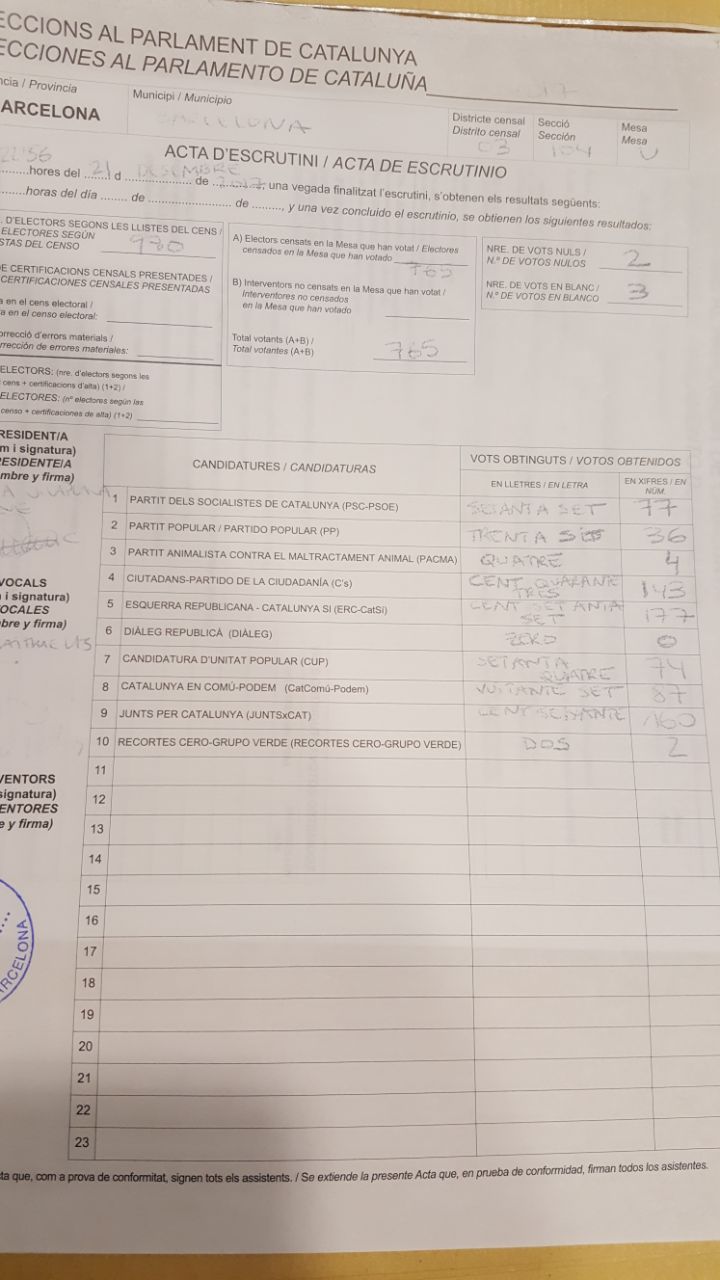 ECCIONS AL PARLAMENT DE CATALUNYA
ECCIONES AL PARLAMENTO DE CATALUÑA 17
ncia / Provincia Municipi / Municipio Districte censal Secció Mesa
Distrito censal Sección Mesa
ARCELONA BARCELONA 03 104 U
ACTA D'ESCRUTINI / ACTA DE ESCRUTINIO
22'56 hores del 21 d DESEMBRE de 2017, una vegada finalitzat l'escrutini, s'obtenen els resultats següents:
horas del día de de , y una vez concluido el escrutinio, se obtienen los siguientes resultados:
. D'ELECTORS SEGONS LES LLISTES DEL CENS /
ELECTORES SEGÚN
STAS DEL CENSO 980
E CERTIFICACIONS CENSALS PRESENTADES /
CERTIFICACIONES CENSALES PRESENTADAS
a en el cens electoral /
a en el censo electoral:
orrecció d'errors materials /
rrección de errores materiales:
ELECTORS: (nre. d'electors segons les
cens + certificacions d'alta) (1+2) /
ELECTORES: (nº electores según las
censo + certificaciones de alta) (1+2)
A) Electors censats en la Mesa que han votat / Electores
censados en la Mesa que han votado 765
B) Interventors no censats en la Mesa que han votat /
Interventores no censados
en la Mesa que han votado
Total votants (A+B) /
Total votantes (A+B) 765
NRE. DE VOTS NULS /
N.º DE VOTOS NULOS 2
NRE. DE VOTS EN BLANC /
N.º DE VOTOS EN BLANCO 3
RESIDENT/A
m i signatura)
RESIDENTE/A
mbre y firma)
VOCALS
i signatura)
OCALES
bre y firma)
VENTORS
signatura)
ENTORES
e y firma)
RCELONA
CANDIDATURES / CANDIDATURAS VOTS OBTINGUTS / VOTOS OBTENIDOS
EN LLETRES / EN LETRA EN XIFRES / EN NÚM.
1 PARTIT DELS SOCIALISTES DE CATALUNYA (PSC-PSOE) SETANTA SET 77
2 PARTIT POPULAR / PARTIDO POPULAR (PP) TRENTA SIS 36
3 PARTIT ANIMALISTA CONTRA EL MALTRACTAMENT ANIMAL (PACMA) QUATRE 4
4 CIUTADANS-PARTIDO DE LA CIUDADANÍA (C's) CENT QUARANTE TRES 143
5 ESQUERRA REPUBLICANA - CATALUNYA SI (ERC-CatSí) CENT SETANTA SET 177
6 DIÀLEG REPUBLICÀ (DIÀLEG) ZERO 0
7 CANDIDATURA D'UNITAT POPULAR (CUP) SETANTA QUATRE 74
8 CATALUNYA EN COMÚ-PODEM (CatComú-Podem) VUITANTE SET 87
9 JUNTS PER CATALUNYA (JUNTSxCAT) CENT SEIXANTE 160
10 RECORTES CERO-GRUPO VERDE (RECORTES CERO-GRUPO VERDE) DOS 2
11
12
13
14
15
16
17
18
19
20
21
22
23
ta que, com a prova de conformitat, signen tots els assistents. / Se extiende la presente Acta que, en prueba de conformidad, firman todos los asistentes.